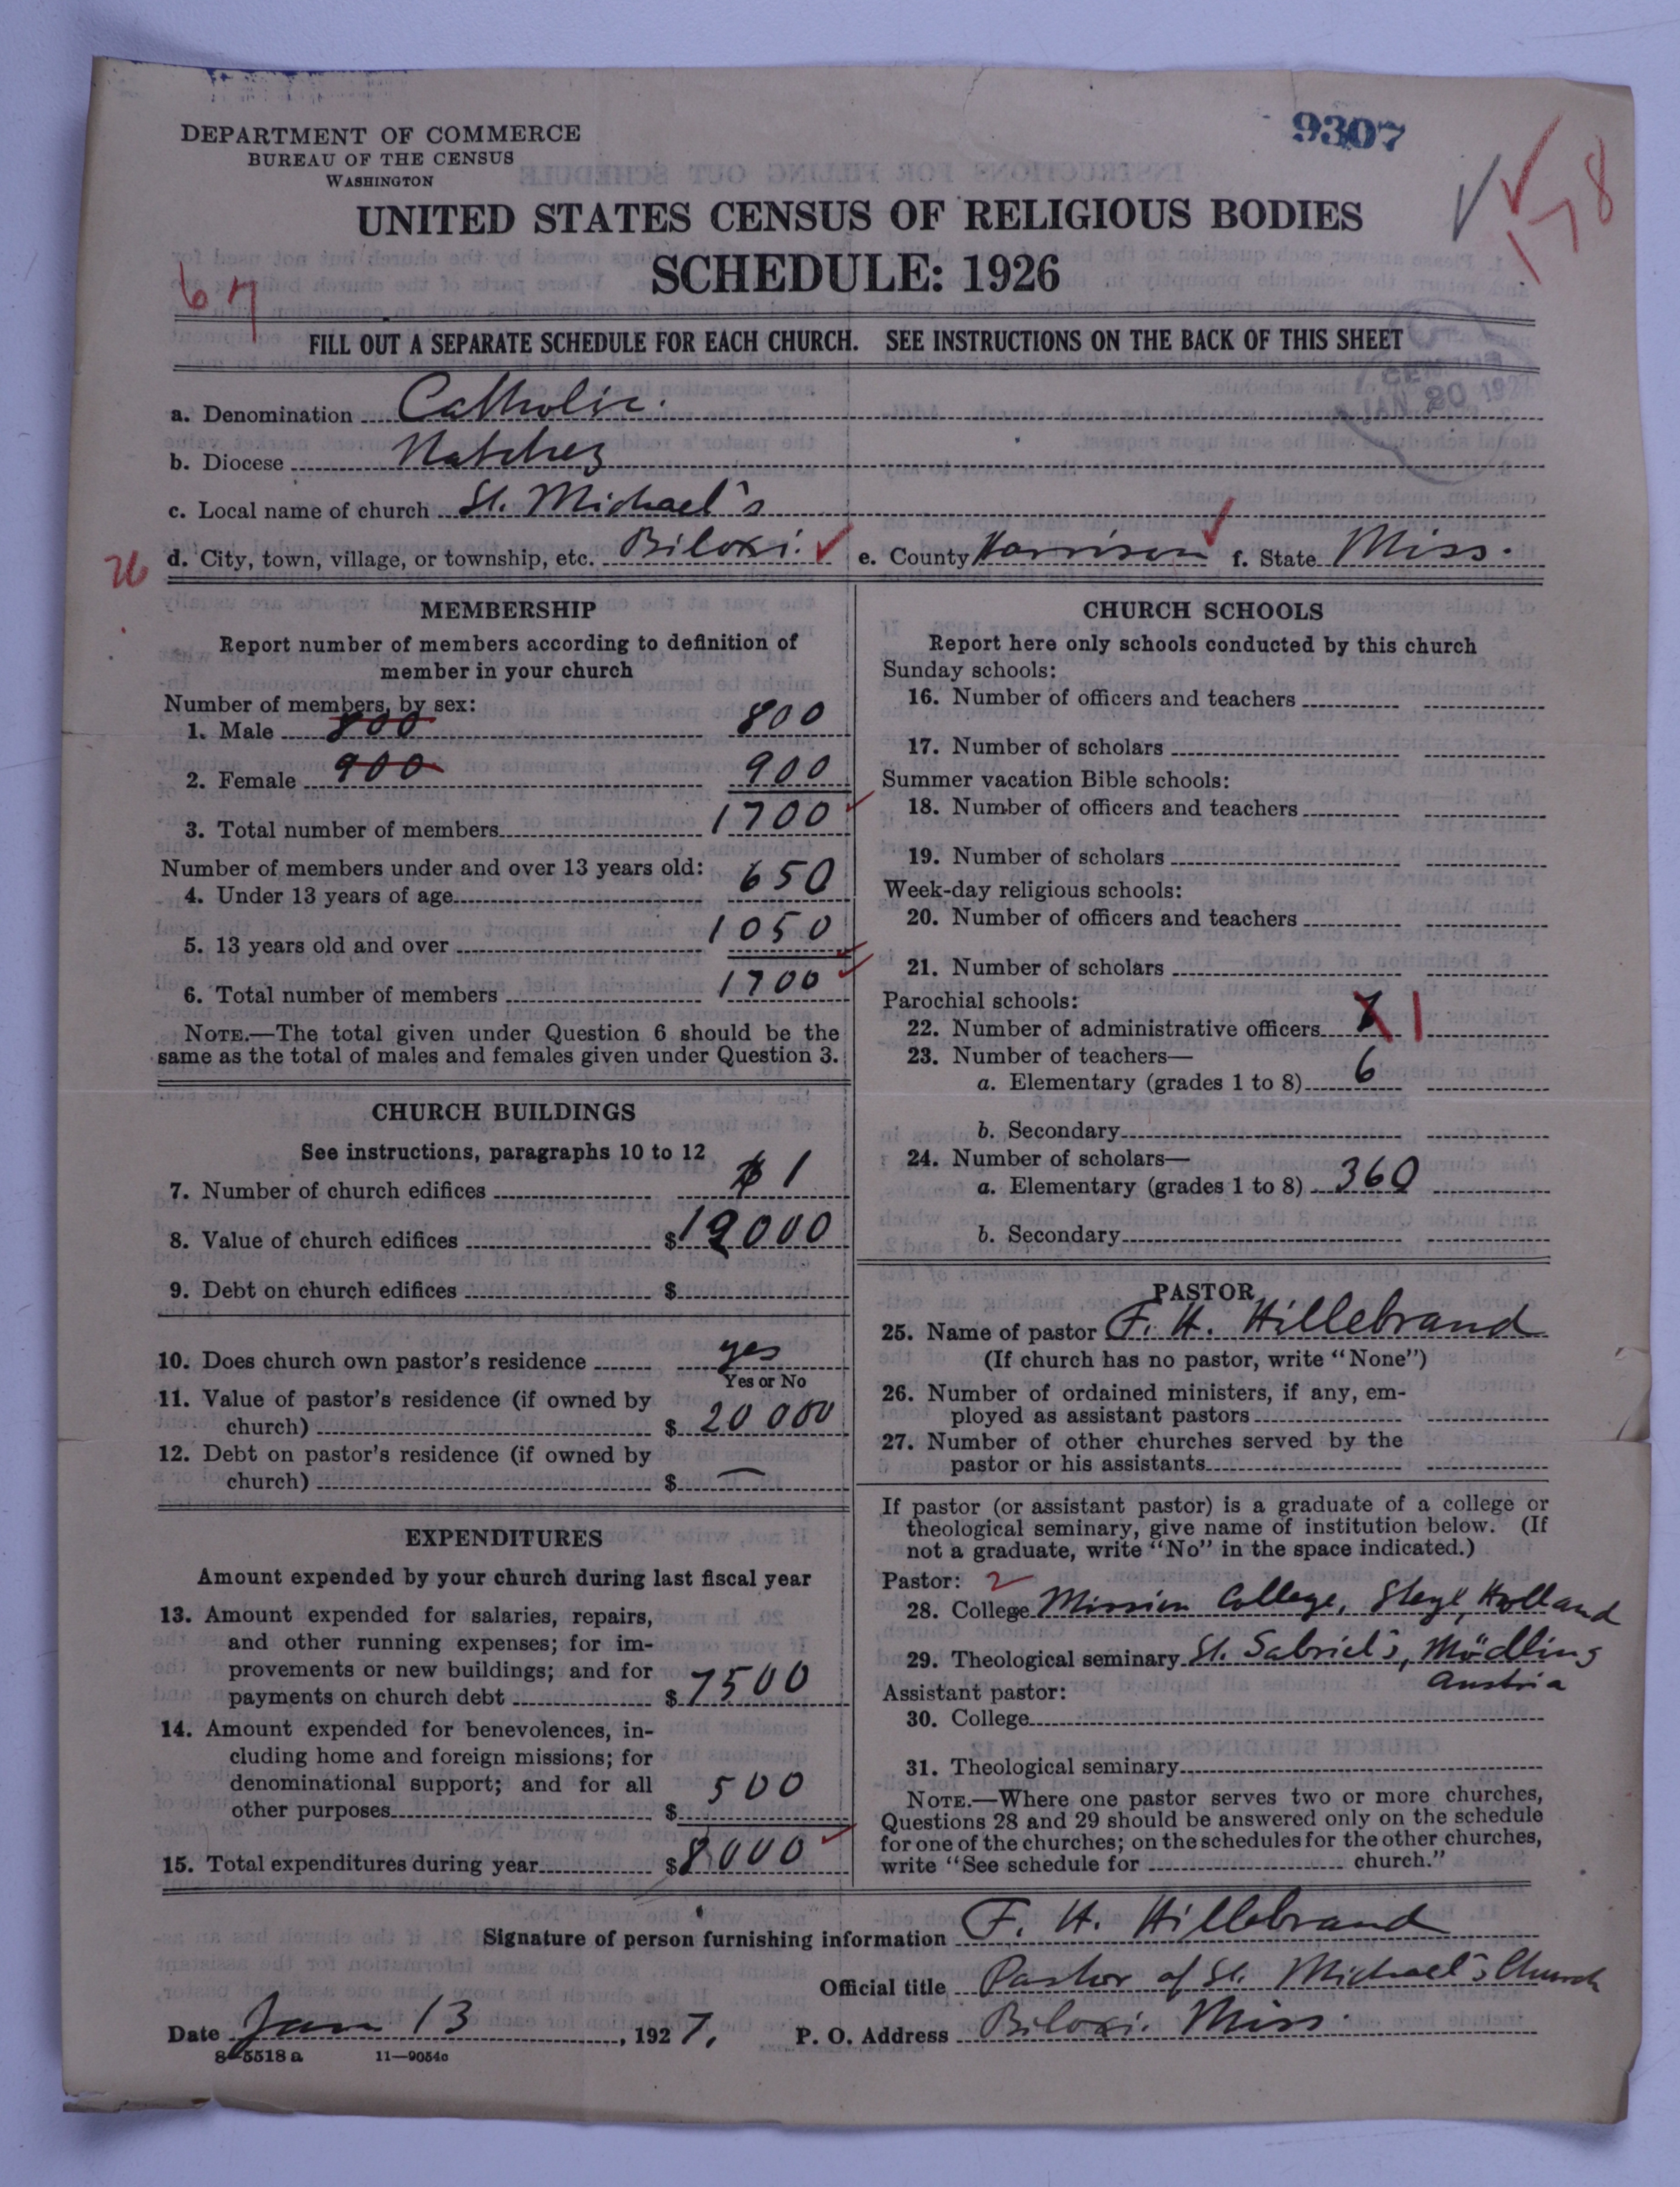 9307
DEPARTMENT OF COMMERCE
BUREAU OF THE CENSUS
WASHINGTON
UNITED STATES CENSUS OF RELIGIOUS BODIES
SCHEDULE: 1926
178
67
FILL OUT A SEPARATE SCHEDULE FOR EACH CHURCH. SEE INSTRUCTIONS ON THE BACK OF THIS SHEET
CENSUS
JAN 20 1927
a. Denomination Catholic.
b. Diocese Natchez
c. Local name of church St. Michael's
26
d. City, town, village, or township, etc. Biloxi. e. County Harrison f. State Miss.
MEMBERSHIP
Report number of members according to definition of
member in your church
Number of members, by sex:
1. Male 800 800
2. Female 900 900
3. Total number of members 1700
Number of members under and over 13 years old:
4. Under 13 years of age 650
5. 13 years old and over 1050
6. Total number of members 1700
NOTE.—The total given under Question 6 should be the
same as the total of males and females given under Question 3.
CHURCH BUILDINGS
See instructions, paragraphs 10 to 12
7. Number of church edifices 1
8. Value of church edifices $ 19000
9. Debt on church edifices $
10. Does church own pastor's residence yes
Yes or No
11. Value of pastor's residence (if owned by
church) $ 20000
12. Debt on pastor's residence (if owned by
church) $ —
EXPENDITURES
Amount expended by your church during last fiscal year
13. Amount expended for salaries, repairs,
and other running expenses; for im-
provements or new buildings; and for
payments on church debt $ 7500
14. Amount expended for benevolences, in-
cluding home and foreign missions; for
denominational support; and for all
other purposes $ 500
15. Total expenditures during year $ 8000
CHURCH SCHOOLS
Report here only schools conducted by this church
Sunday schools:
16. Number of officers and teachers
17. Number of scholars
Summer vacation Bible schools:
18. Number of officers and teachers
19. Number of scholars
Week-day religious schools:
20. Number of officers and teachers
21. Number of scholars
Parochial schools:
22. Number of administrative officers 1
23. Number of teachers—
a. Elementary (grades 1 to 8) 6
b. Secondary
24. Number of scholars—
a. Elementary (grades 1 to 8) 360
b. Secondary
PASTOR
25. Name of pastor F. H. Hillebrand
(If church has no pastor, write "None")
26. Number of ordained ministers, if any, em-
ployed as assistant pastors
27. Number of other churches served by the
pastor or his assistants
If pastor (or assistant pastor) is a graduate of a college or
theological seminary, give name of institution below. (If
not a graduate, write "No" in the space indicated.)
Pastor: 2
28. College Mission College, Steyl, Holland
29. Theological seminary St. Gabriel's, Mödling
Austria
Assistant pastor:
30. College
31. Theological seminary
NOTE.—Where one pastor serves two or more churches,
Questions 28 and 29 should be answered only on the schedule
for one of the churches; on the schedules for the other churches,
write "See schedule for church."
Signature of person furnishing information F. H. Hillebrand
Official title Pastor of St. Michael's Church
Date Jan 13, 1927. P. O. Address Biloxi. Miss.
8-5518 a 11—9054c